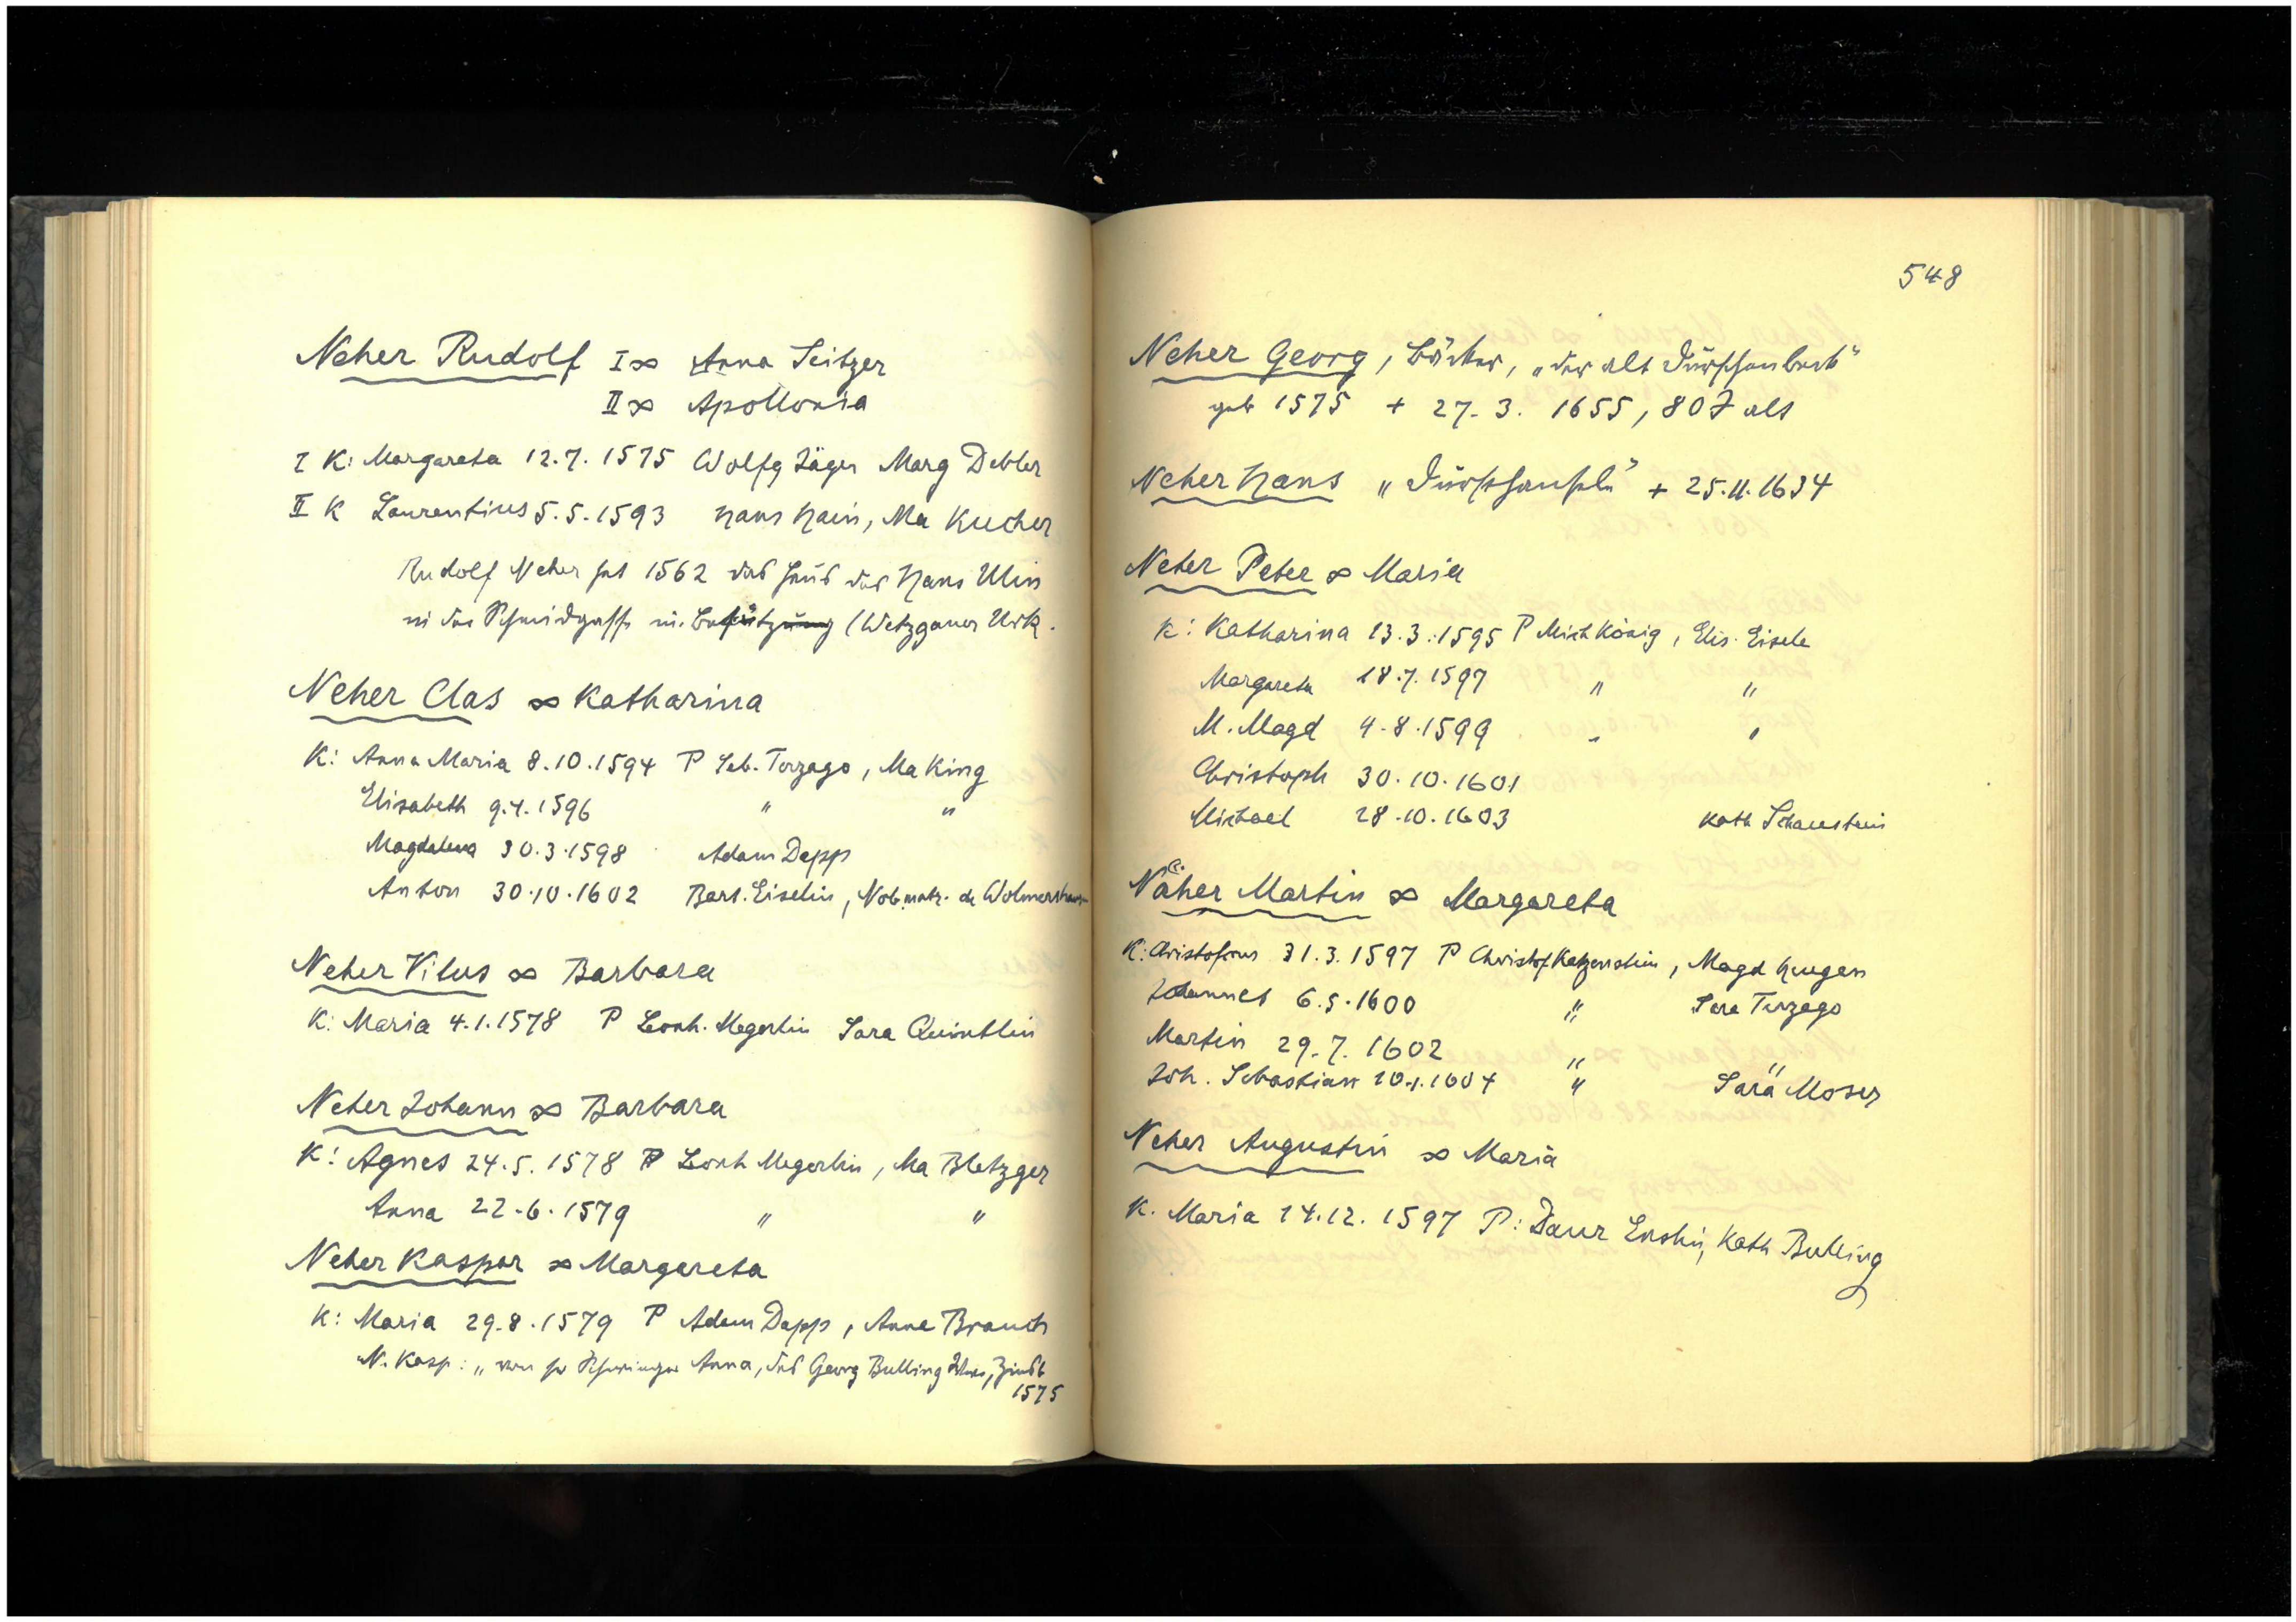 Neher Rudolf I ∞ Anna Seitzer
II ∞ Apollonia
I K: Margareta 12.7.1575 Wolfg Jäger Marg Debler
II K Laurentius 5.5.1593 Hans Hain, Ma Kucher
Rudolf Neher hat 1562 das Haus des Hans Ulin
in der Schmidgasse in Besitz (Wetzgauer Urk.
Neher Clas ∞ Katharina
K: Anna Maria 8.10.1594 P Seb. Terzago, Ma King
Elisabeth 9.4.1596 " "
Magdalena 30.3.1598 Adam Dapp
Anton 30.10.1602 Bart. Eiselin, Nob. matr. de
Neher Vitus ∞ Barbara
K: Maria 4.1.1578 P Leonh. Megerlin Sara Quintlin
Neher Johann ∞ Barbara
K: Agnes 24.5.1578 P Leonh Megerlin, Ma Bletzger
Anna 22.6.1579 " "
Neher Kaspar ∞ Margareta
K: Maria 29.8.1579 P Adam Dapp, Anna Brauch
N. Kasp: „ von sr Schwieger Anna, des Georg Bulling
1575
548
Neher Georg, Bäcker, „der alt Dürschenbeck"
geb 1575 + 27.3.1655, 80 J alt
Neher Hans + 25.11.1634
Neher Peter ∞ Maria
K: Katharina 13.3.1595 P Mich König, Elis. Eisele
Margareta 18.7.1597 " "
M. Magd 4.8.1599 " "
Christoph 30.10.1601
Michael 28.10.1603 Kath Schaustein
Näher Martin ∞ Margareta
K: Christoforus 31.3.1597 P Christof Katzenstein, Magd Haugen
Johannes 6.5.1600 " Sara Terzago
Martin 29.7.1602 " "
Joh. Sebastian 10.1.1604 " Sara Moser
Neher Augustin ∞ Maria
K. Maria 14.12.1597 P: Kath Bulling